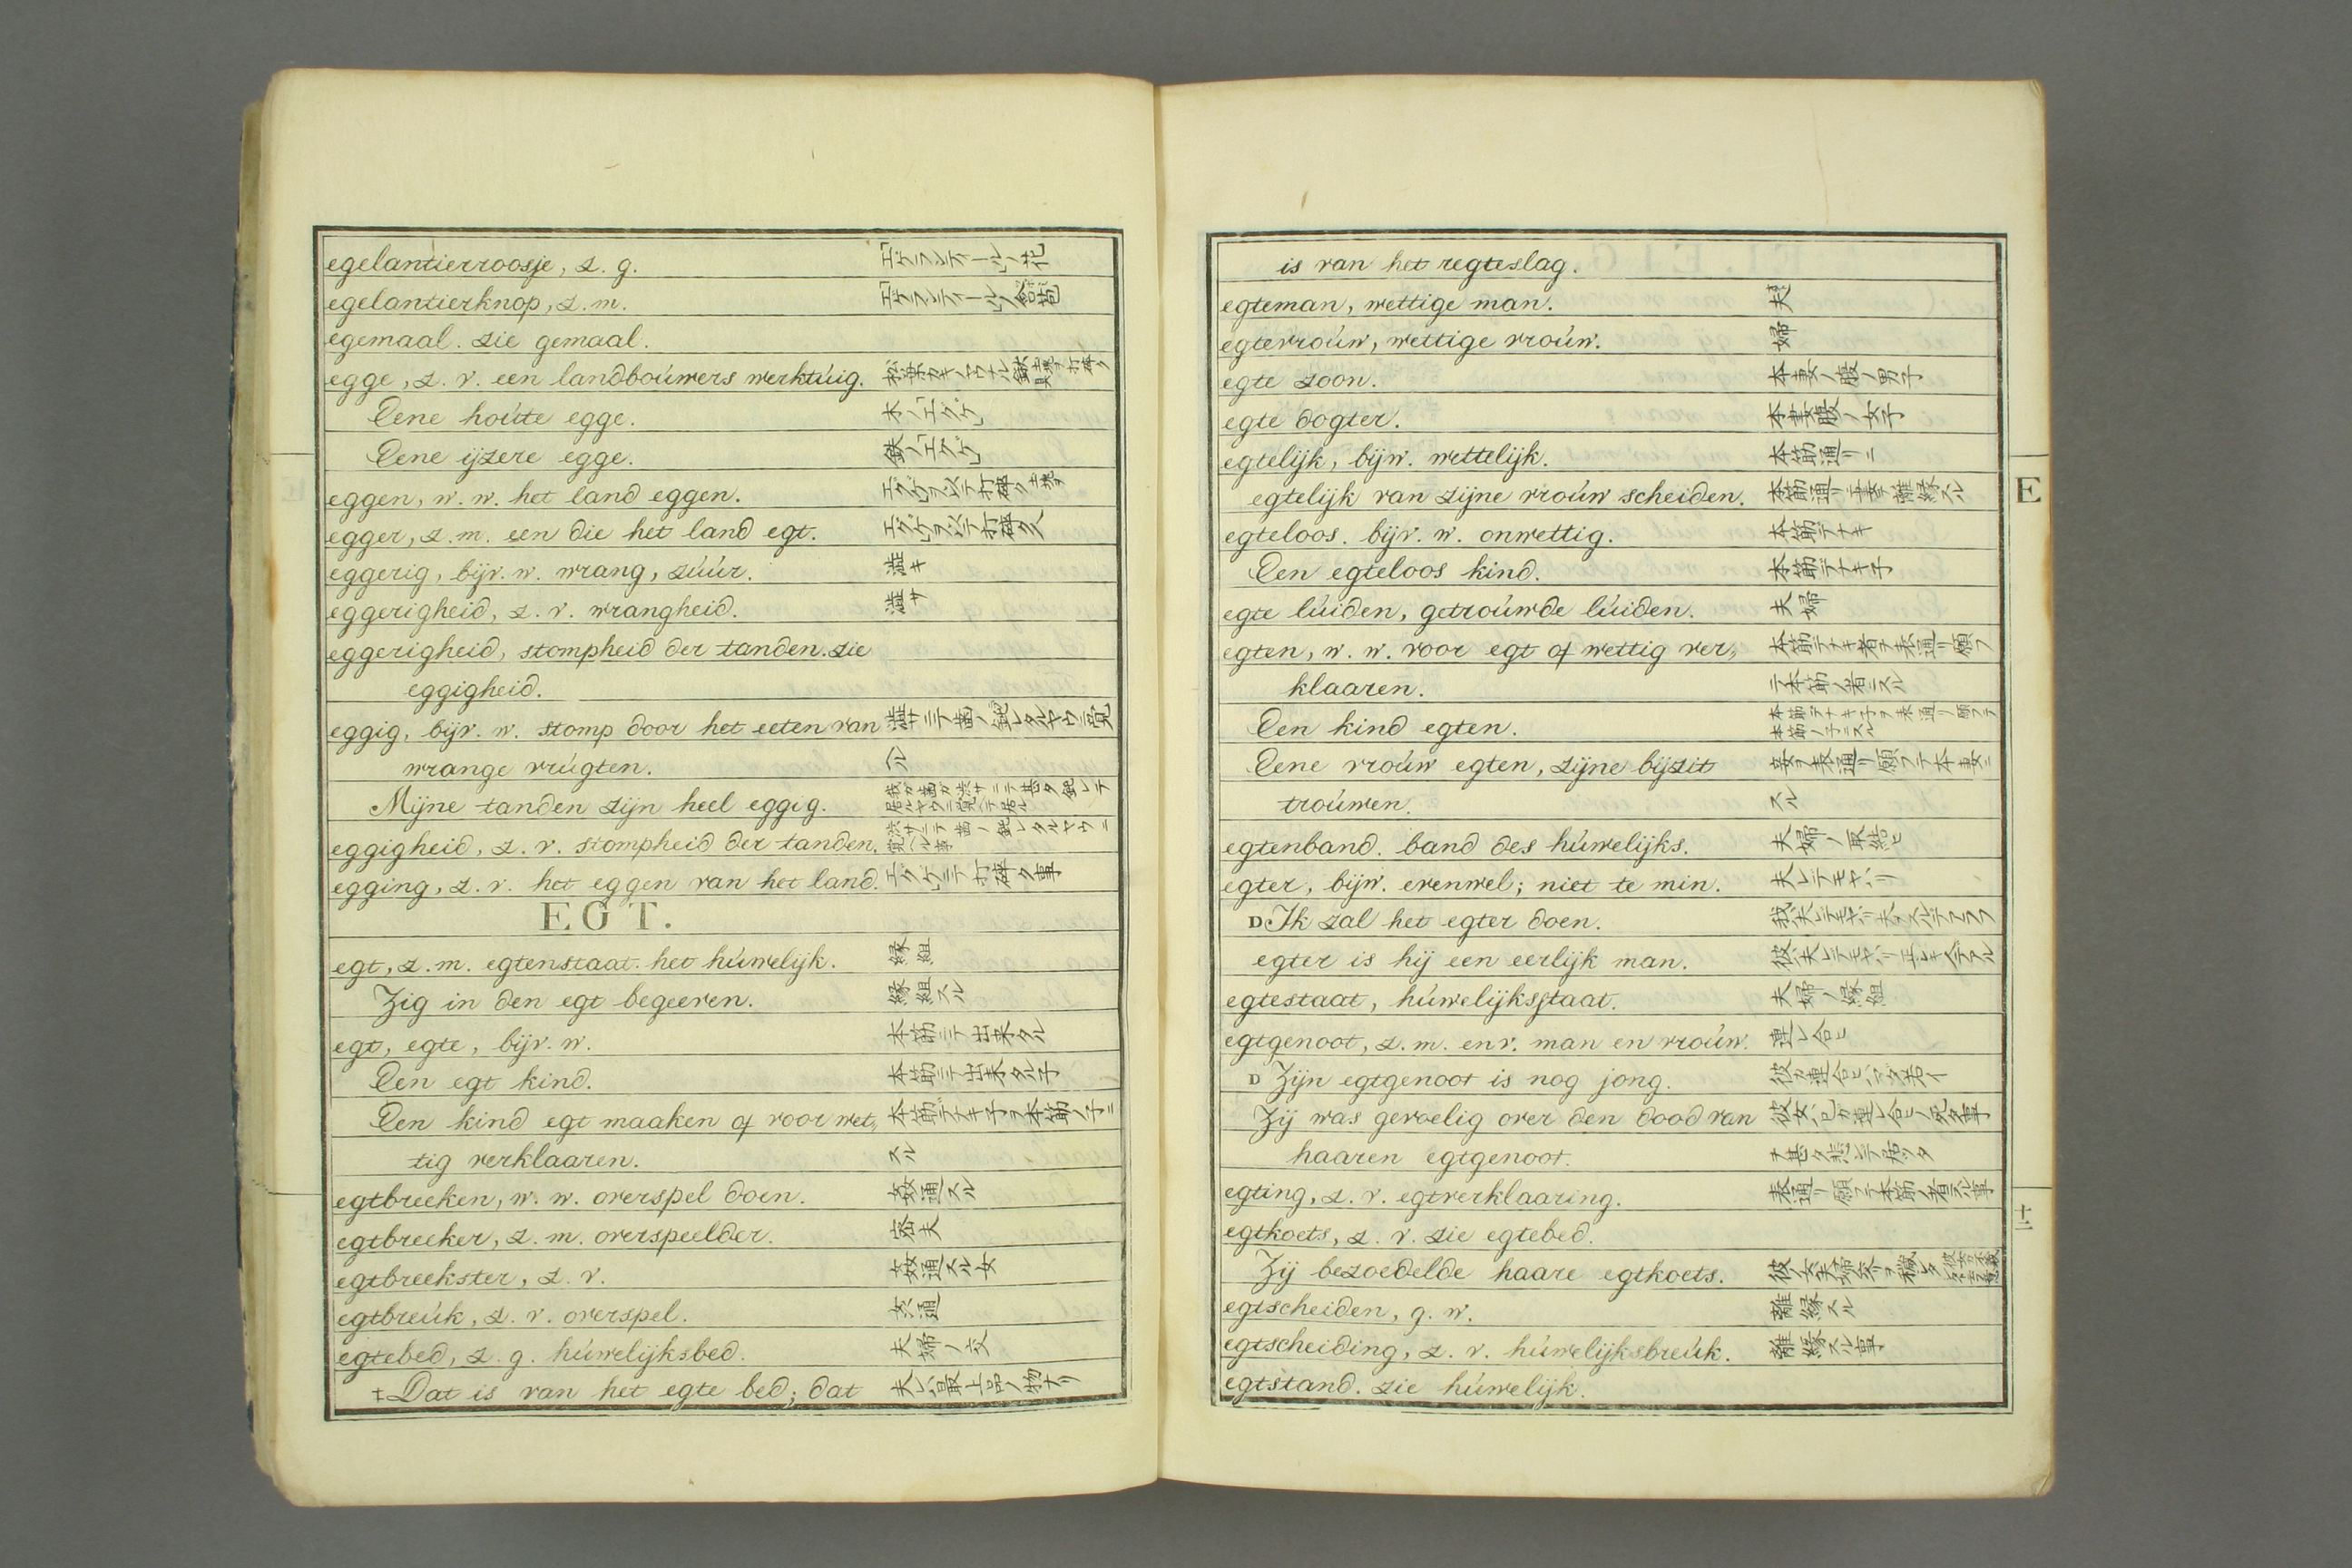 egelantierroosje, z. g. 「エゲランティール」ノ花
egelantierknop, z. m. 「エゲランティール」ノ含苞
egemaal. zie gemaal.
egge, z. v. een landboúwers werktúig.
Eene hoúte egge.木ノ「エグゲ」
Eene ijzere egge. 鉄ノ「エグゲ」
eggen, w. w. het land eggen.
egger, z. m. een die het land egt.
eggerig, bijv. w. wrang, zúúr. 澁キ
eggerigheid, z. v. wrangheid. 澁サ
eggerigheid, stompheid der tanden. zie
eggigheid.
eggig, bijv. w. stomp door het eeten van
wrange vrúgten.
Mijne tanden zijn heel eggig.
eggigheid, z. v. stompheid der tanden.
egging, z. v. het eggen van het land.
EGT.
egt, z. m. egtenstaat. het húwelijk. 縁組
Zig in den egt begeeven. 縁組スル
egt, egte, bijv. w. 本筋ニテ出来タル
Een egt kind. 本筋ニテ出来タル子
Een kind egt maaken of voor wet„ 本筋デナキ子ヲ本筋ノ子ニ
tig verklaaren. スル
egtbreeken, w. w. overspel doen. 姦通スル
egtbreeker, z. m. overspeelder. 密夫
egtbreekster, z. v. 姦通スル女
egtbreúk, z. v. overspel. 姦通
egtebed, z. g. húwelijksbed. 夫婦ノ交
+Dat is van het egte bed; dat 夫レハ最上品ノ物ナリ
is van het regteslag.
egteman, wettige man. 夫
egtevroúw, wettige vroúw. 婦
egte zoon. 本妻ノ腹ノ男子
egte dogter. 本妻腹ノ女子
egtelijk, bijw. wettelijk. 本筋通リニ
egtelijk van zijne vroúw scheiden.
egteloos. bijv. w. onwettig. 本筋デナキ
Een egteloos kind. 本筋デナキ子
egte lúiden, getroúwde lúiden. 夫婦
egten, w. w. voor egt of wettig ver„ 本筋デナキ者ヲ表通リ願フ
klaaren. テ本筋ノ者ニスル
Een kind egten. 本筋デナキ子ヲ表通リ願フテ
本筋ノ子ニスル
Eene vroúw egten, zijne bijzit 妾ヲ表通リ願フテ本妻ニ
troúwen. スル
egtenband. band des húwelijks. 夫婦ノ取結ビ
egter, bijw. evenwel; niet te min. 夫レデモヤハリ
D Ik zal het egter doen.
egter is hij een eerlijk man.
egtestaat, húwelijksstaat. 夫婦ノ縁組
egtgenoot, z. m. en v. man en vroúw. 連レ合ヒ
D Zijn egtgenoot is nog jong.
Zij was gevoelig over den dood van
haaren egtgenoot.
egting, z. v. egtverklaaring.
egtkoets, z. v. zie egtebed.
Zij bezoedelde haare egtkoets.
egtscheiden, g. w. 離縁スル
egtscheiding, z. v. húwelijksbreúk. 離縁スル事
egtstand. zie húwelijk.
E